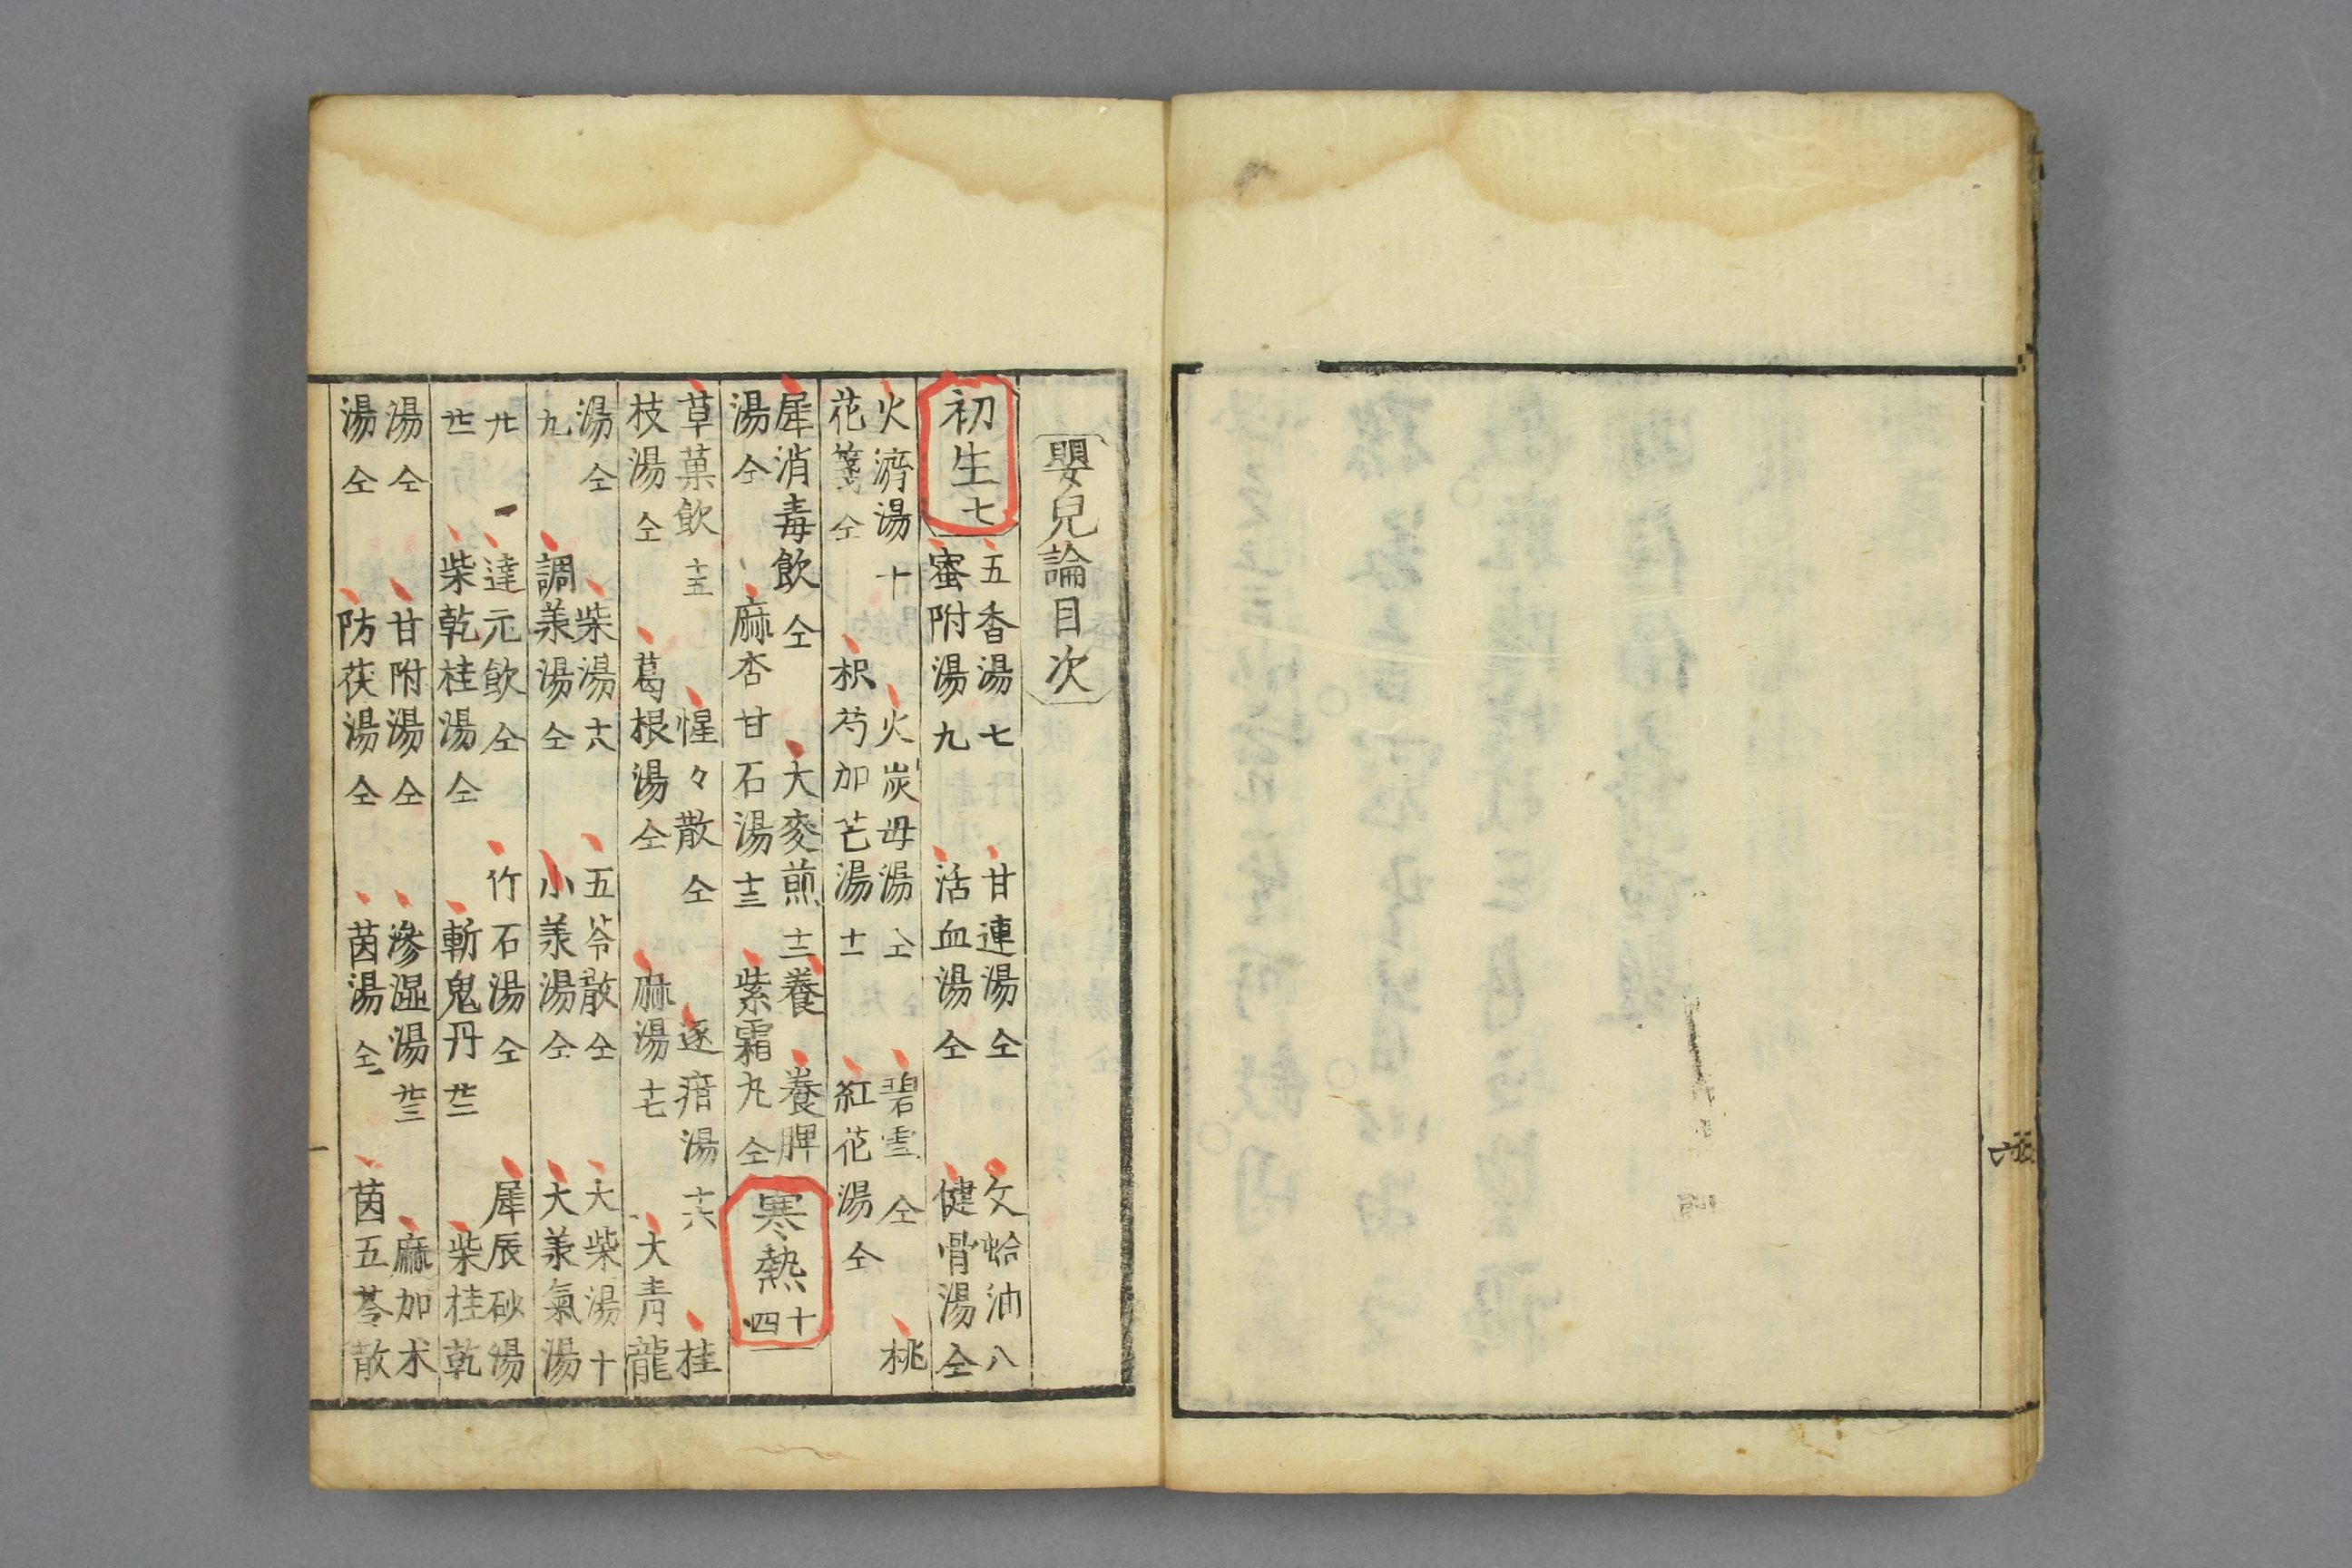 嬰兒論目次
初生七
五香湯七 甘連湯仝 文蛤油八
蜜附湯九 活血湯仝 健骨湯仝
火濟湯十 火炭母湯仝 碧雪仝 桃
花箋仝 枳芍加芒湯十一 紅花湯仝
犀消毒飲仝 大麥煎十二 養 養脾
湯仝 麻杏甘石湯十三 紫霜丸仝
寒熱十四
草菓飲十五 惺々散仝 逐瘖湯十六 桂
枝湯仝 葛根湯仝 麻湯十七 大青龍
湯仝 柴湯十八 五苓散仝 大柴湯十
九 調羕湯仝 小羕湯仝 大羕氣湯
廿 達元飲仝 竹石湯仝 犀辰砂湯
廿一 柴乾桂湯仝 斬鬼丹廿二 柴桂乾
湯仝 甘附湯仝 滲濕湯廿三 麻加朮
湯仝 防茯湯仝 茵湯仝 茵五苓散